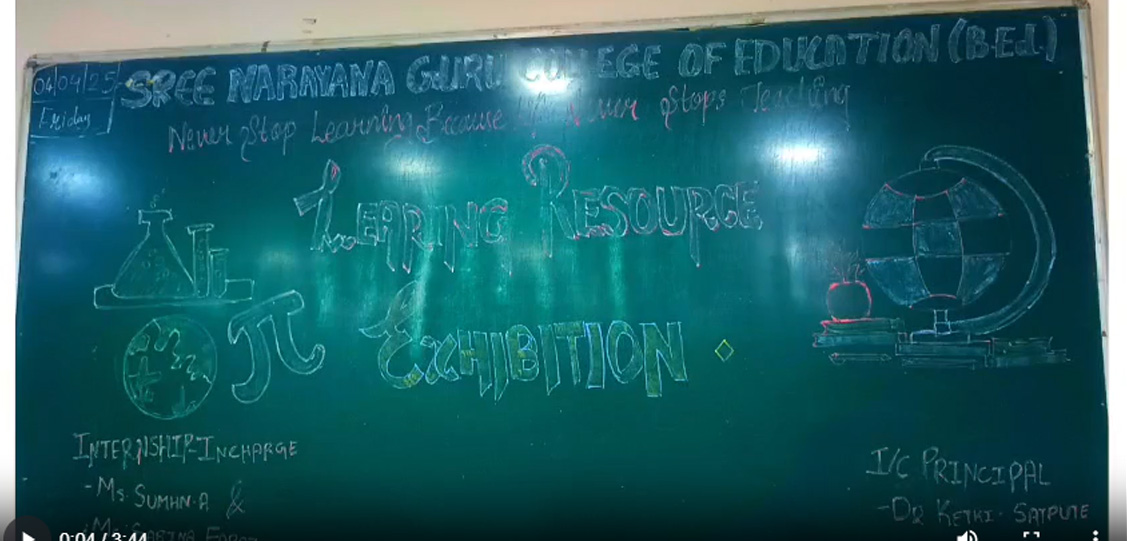 04/04/25
Friday
SREE NARAYANA GURU COLLEGE OF EDUCATION (B.Ed.)
Never Stop Learning Because Life Never Stops Teaching
LEARING RESOURCE
EXHIBITION
π
INTERNSHIP-INCHARGE
- Ms. SUMAN.A &
I/C PRINCIPAL
- DR KETKI. SATPUTE
0:04 / 3:44